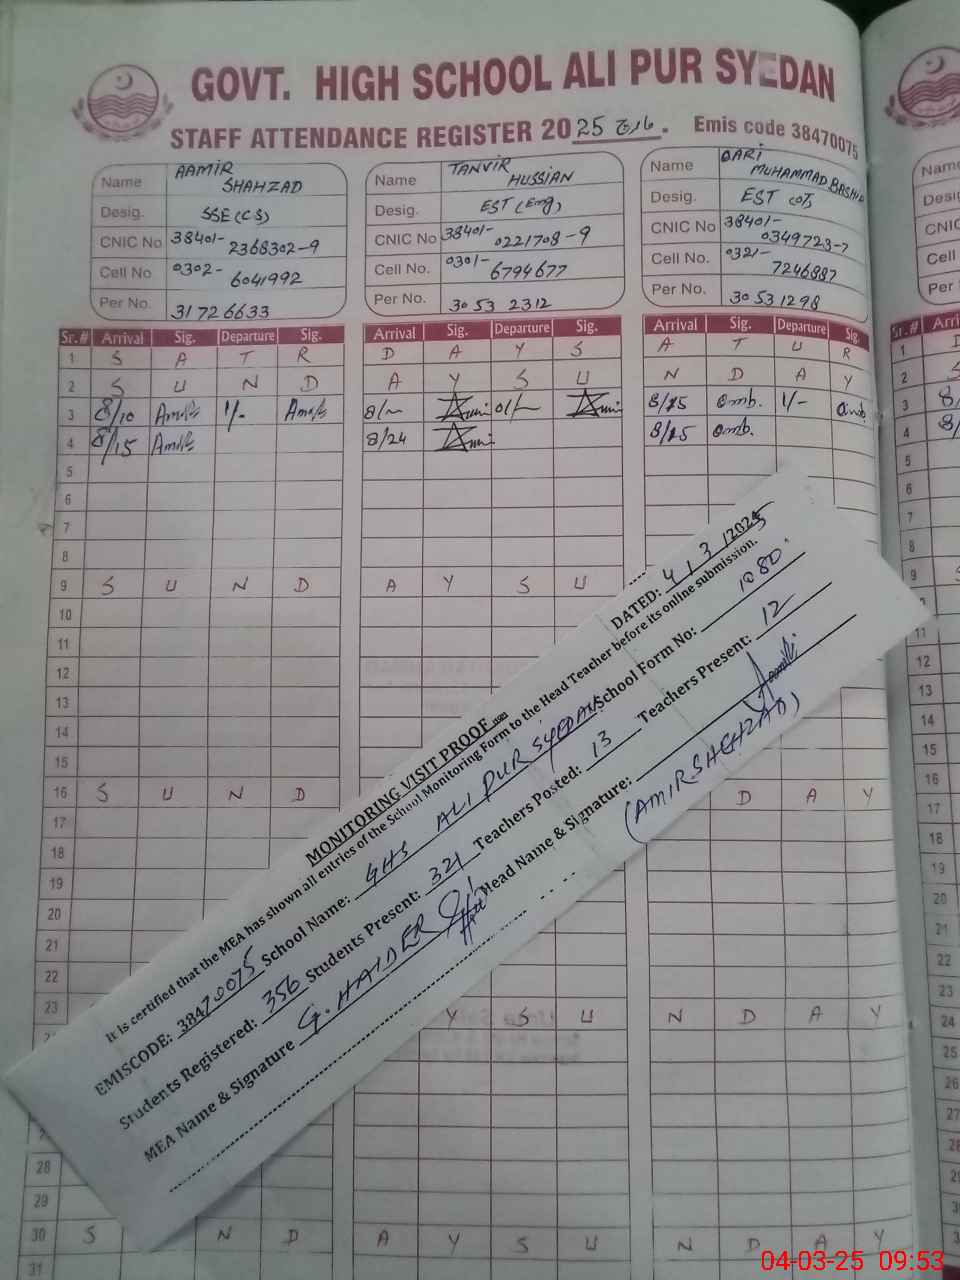 GOVT. HIGH SCHOOL ALI PUR SYEDAN
STAFF ATTENDANCE REGISTER 2025 مارچ.
Emis code 38470075
Name AAMIR SHAHZAD
Desig. SSE(CS)
CNIC No 38401-2368302-9
Cell No 0302-6041992
Per No. 31726633
Name TANVIR HUSSIAN
Desig. EST (Eng)
CNIC No 38401-0221708-9
Cell No. 0301-6794677
Per No. 30532312
Name QARI MUHAMMAD BASHIR
Desig. EST
CNIC No 38401-0349723-7
Cell No. 0321-7246887
Per No. 30531298
Sr.# Arrival Sig. Departure Sig. Arrival Sig. Departure Sig. Arrival Sig. Departure Sig.
1 S A T R D A Y S A T U R
2 S U N D A Y S U N D A Y
3 8/10 1/- 8/15 1/-
4 8/15 8/24 8/15
5
6
7
8
9 S U N D A Y S U
10
11
12
13
14
15
16 S U N D D A Y
17
18
19
20
21
22
23 Y S U N D A Y
28
29
30 S N D A Y S U N D A Y
31
MONITORING VISIT PROOF
DATED: 4/3/2025
It is certified that the MEA has shown all entries of the School Monitoring Form to the Head Teacher before its online submission.
EMISCODE: 38470075 School Name: GHS ALI PUR SYEDAN School Form No: 1080
Students Registered: 356 Students Present: 321 Teachers Posted: 13 Teachers Present: 12
MEA Name & Signature G. HAIDER Head Name & Signature:
(AMIR SHEHZAD)
04-03-25 09:53